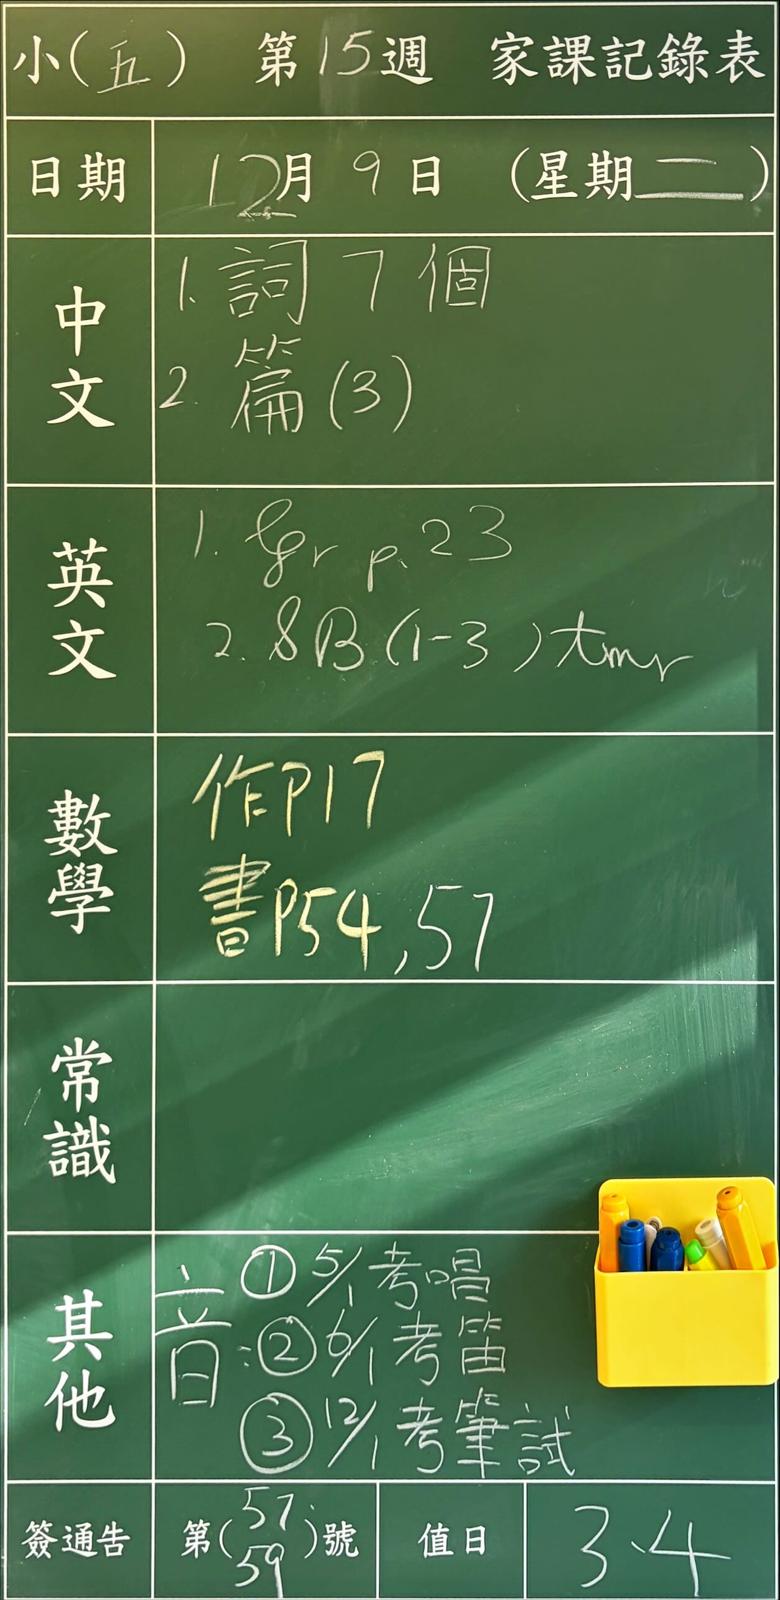 小(五) 第15週 家課記錄表
日期 12月9日 (星期二)
中文
1. 詞7個
2. 篇(3)
英文
1. gr p.23
2. 8B (1-3) tmr
數學
作P17
書P54,57
常識
其他
音:① 5/1 考唱
② 6/1 考笛
③ 12/1 考筆試
簽通告 第(57, 59)號 值日 3、4